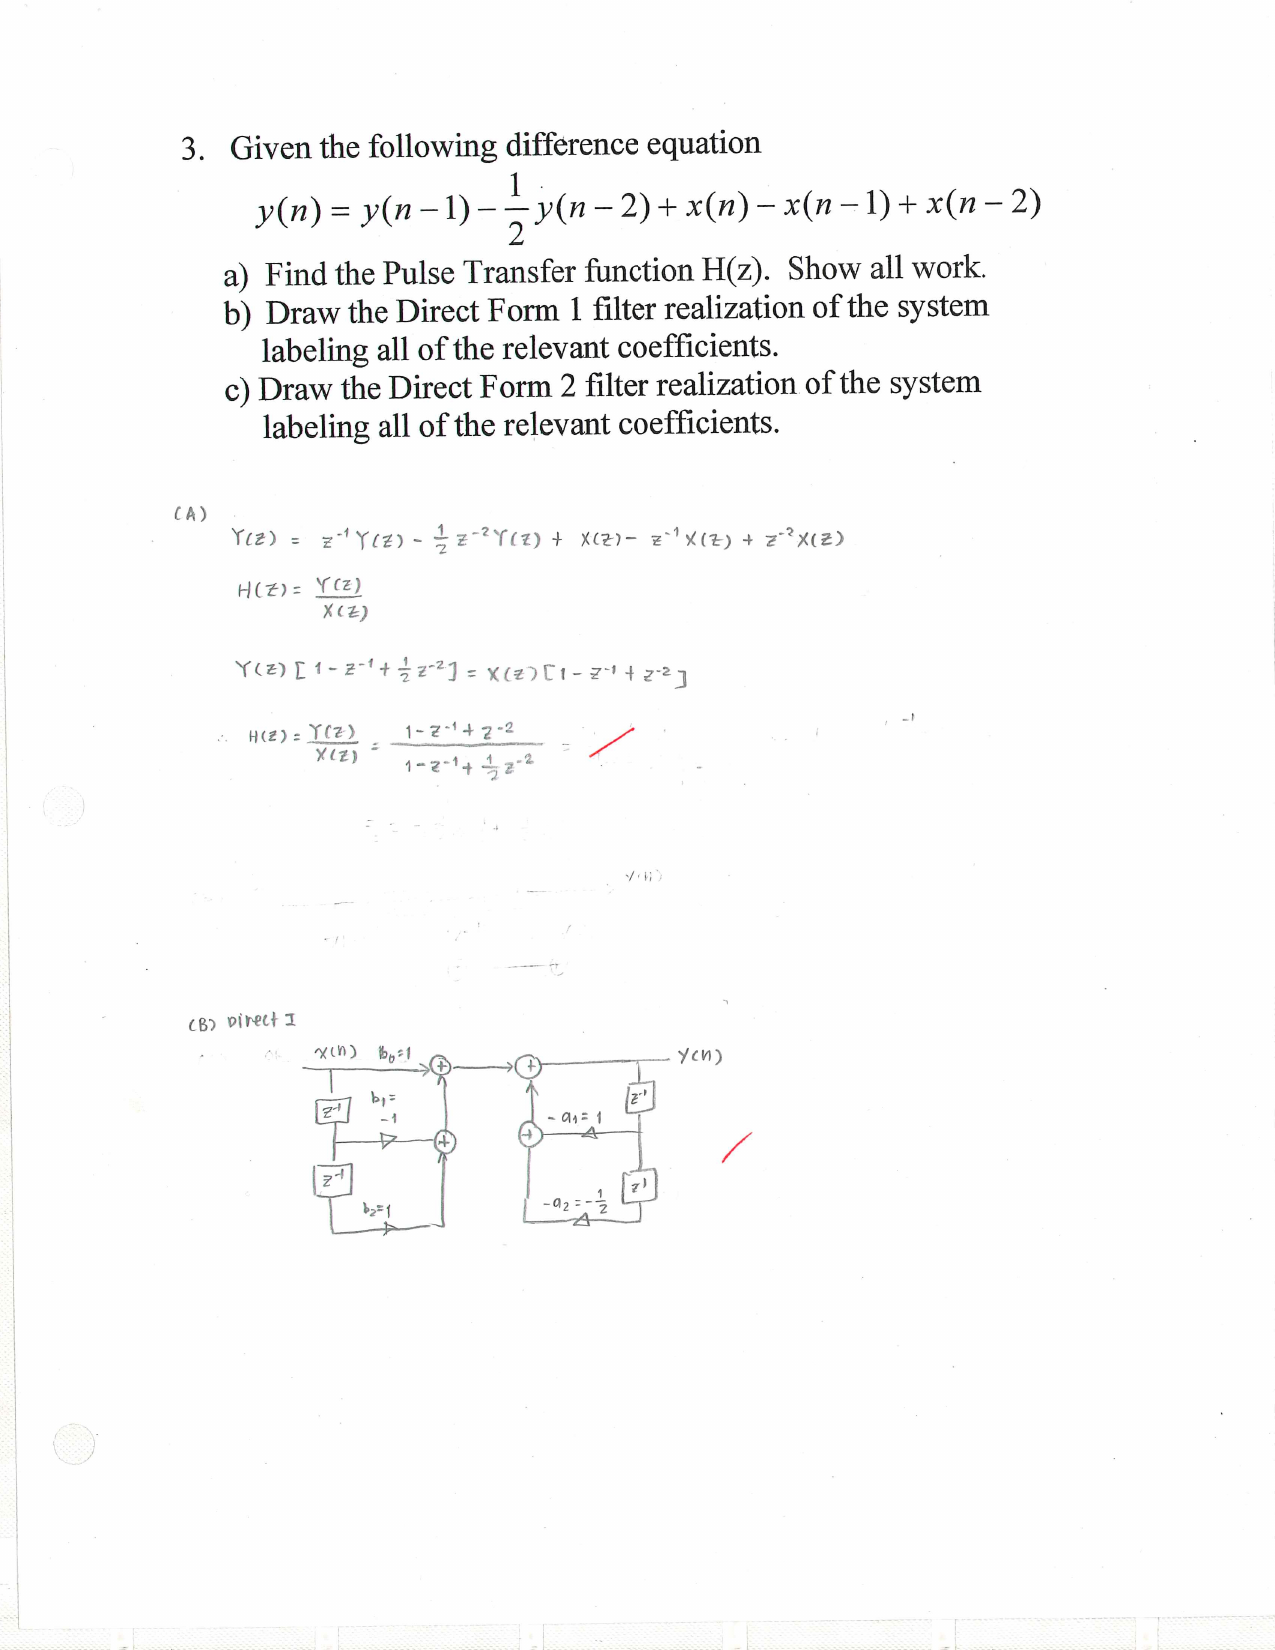 3. Given the following difference equation
y(n) = y(n − 1) − 1/2 y(n − 2) + x(n) − x(n − 1) + x(n − 2)
a) Find the Pulse Transfer function H(z). Show all work.
b) Draw the Direct Form 1 filter realization of the system
labeling all of the relevant coefficients.
c) Draw the Direct Form 2 filter realization of the system
labeling all of the relevant coefficients.
(A)
Y(z) = z⁻¹Y(z) - 1/2 z⁻²Y(z) + X(z) - z⁻¹X(z) + z⁻²X(z)
H(z) = Y(z)/X(z)
Y(z) [1 - z⁻¹ + 1/2 z⁻²] = X(z) [1 - z⁻¹ + z⁻²]
∴ H(z) = Y(z)/X(z) = (1 - z⁻¹ + z⁻²)/(1 - z⁻¹ + 1/2 z⁻²) =
(B) Direct I
x(n) b₀=1 + + y(n)
z⁻¹ b₁= -1 + + -a₁=1 z⁻¹
z⁻¹ b₂=1 -a₂=-1/2 z¹